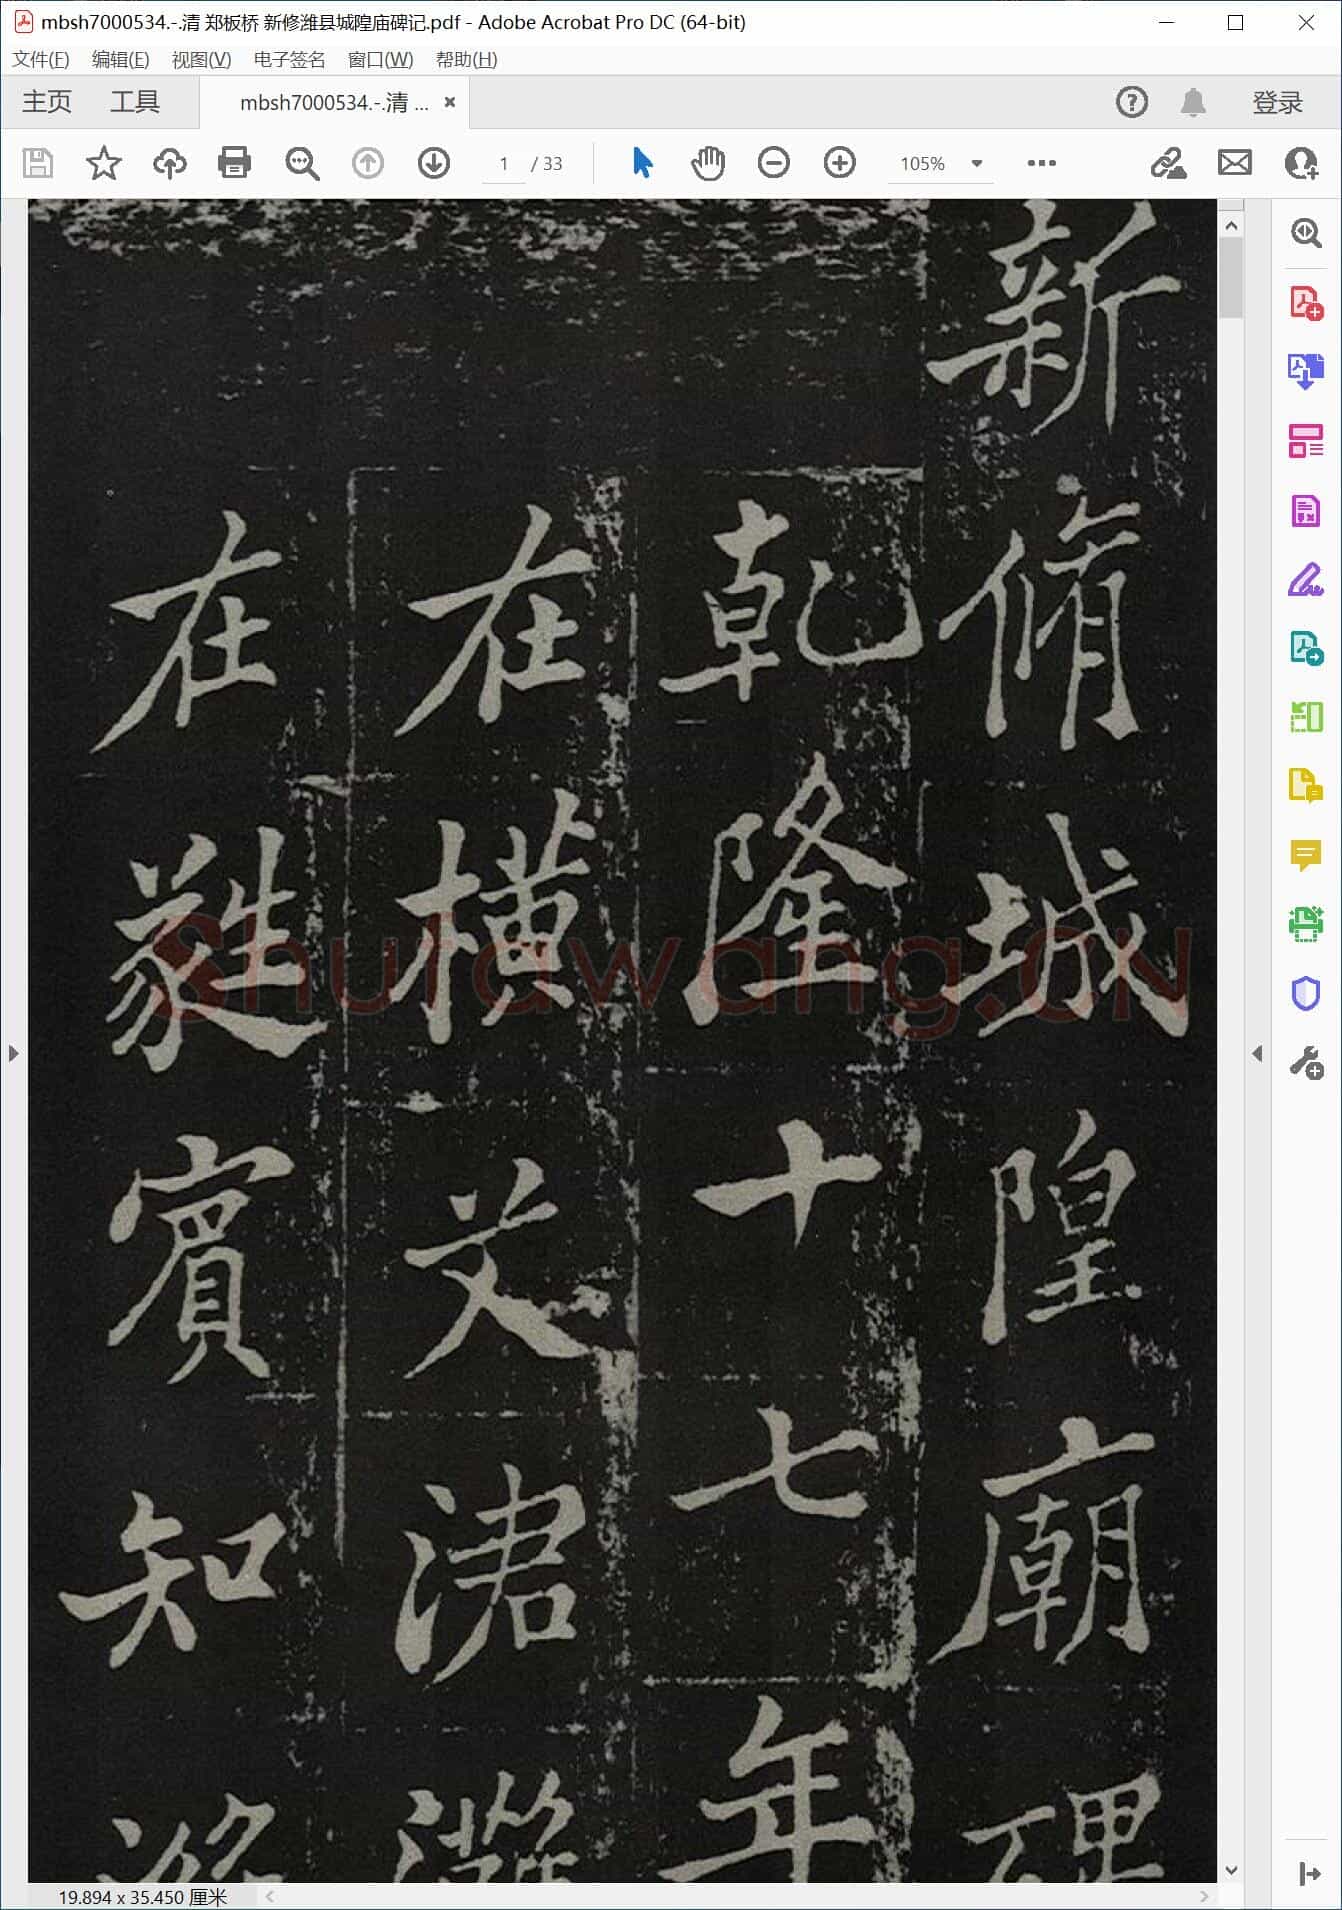 mbsh7000534.-.清 郑板桥 新修潍县城隍庙碑记.pdf - Adobe Acrobat Pro DC (64-bit)
文件(F) 编辑(E) 视图(V) 电子签名 窗口(W) 帮助(H)
主页 工具 mbsh7000534.-.清 ... × 登录
1 / 33 105%
新脩城隍廟碑
乾隆十七年
在橫艾涒灘
在甤賓知
shufawang.CN
19.894 x 35.450 厘米